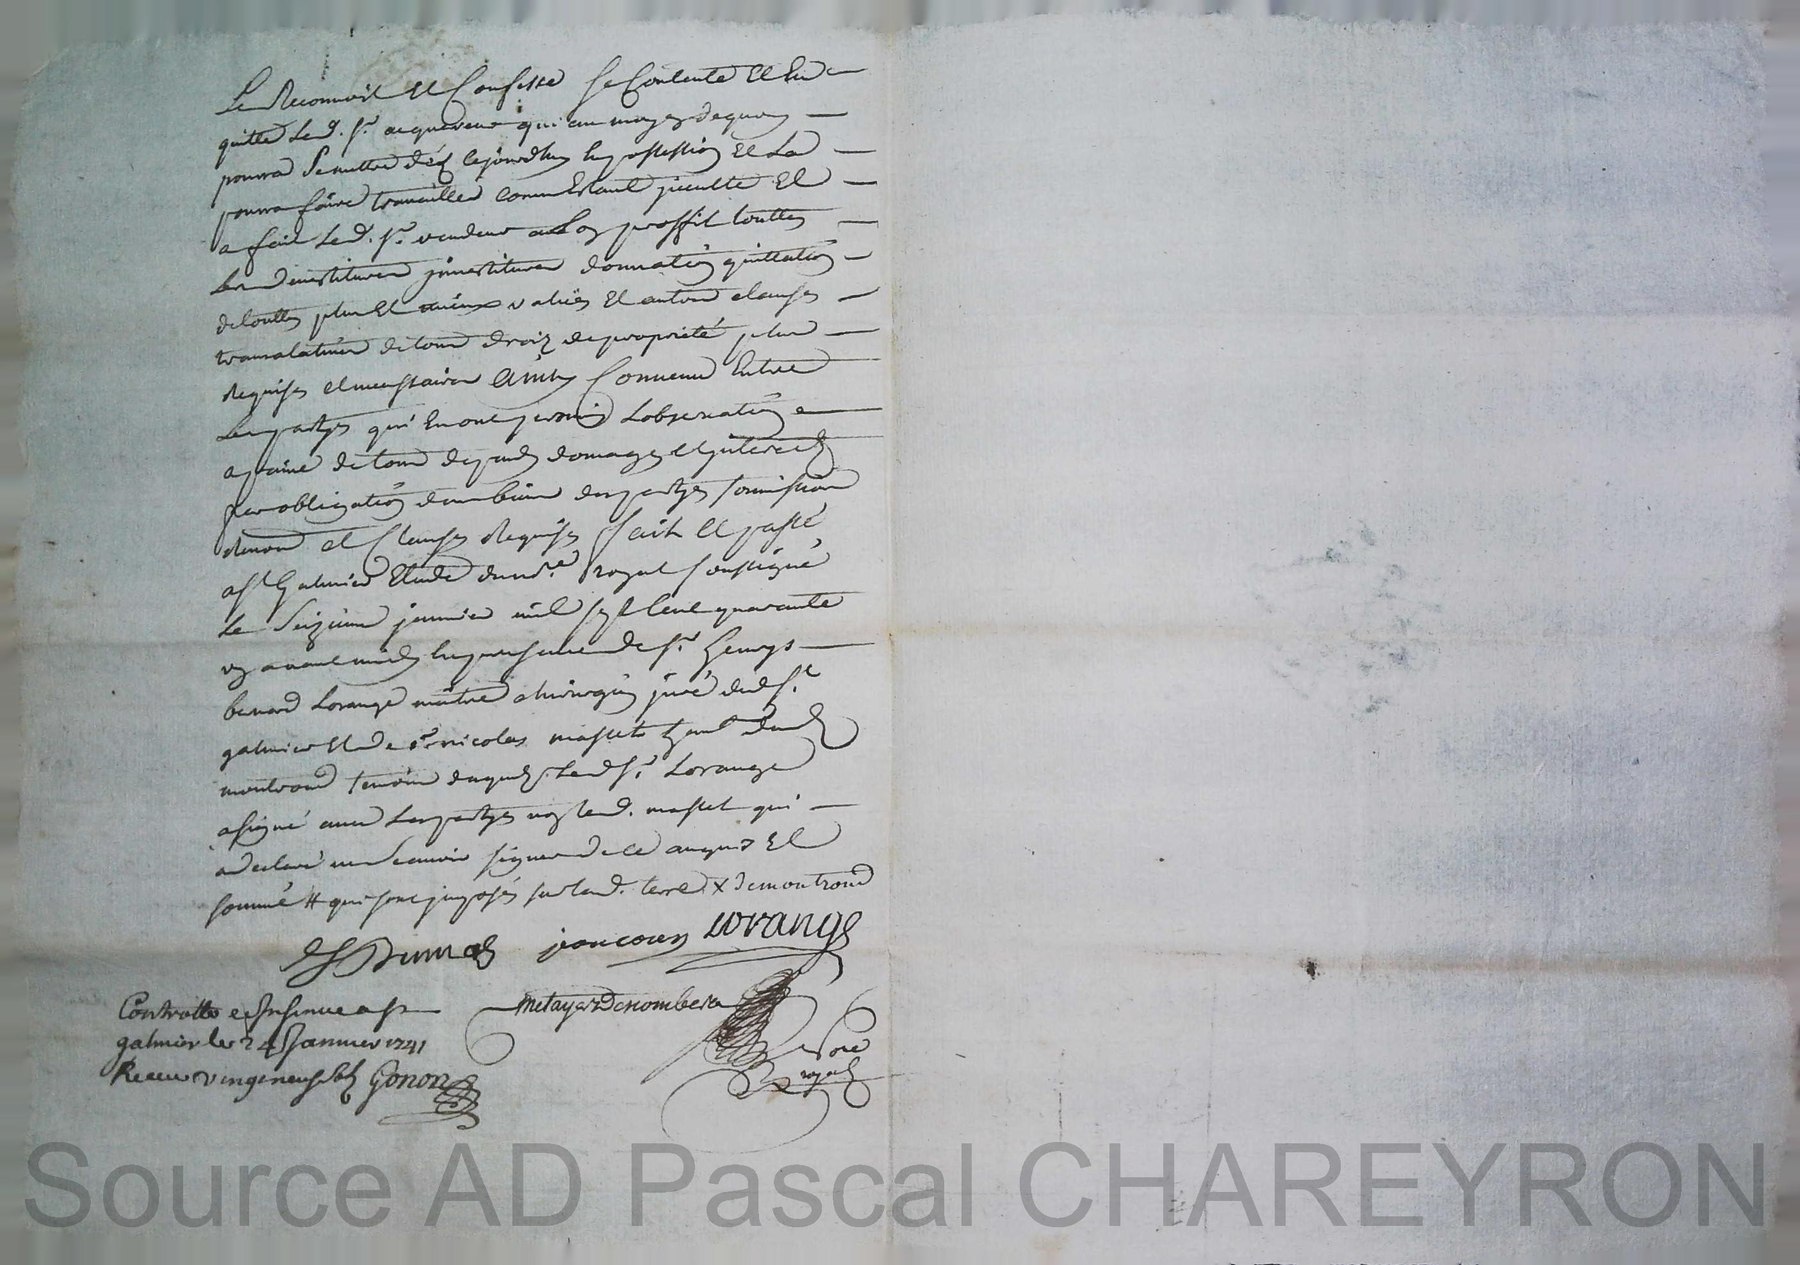 Le Reconnoit Et Confesse se Contente Et En
quitte Led. Sr. acquereur qui au moyen dequoy
pourra Semettre dez cejourdhuy En possession Et La
pourra faire travailler comm Estant jcculte El
a fait Led. Sr. vendeur a son proffit touttes
Les demistitures jnvestitures donnation quittation
de touttes plus Et mieux values Et autres clauses
translatives de tous droiz de proprieté plus
Requises et necessaires ainsy Convenu Entre
Les partyes qui En ont promis Lobservation
a peine de tous depends domages et jnterets
par obligation deurs biens desd. partyes soumissions
Renon. et Clauses Requises fait Et passé
a St Galmier Etude du no.re royal soussigné
Le Seizieme janvier mil sept Cent quarante
un avant midy En presence de Sr. Genesys
benard Lorange maitre chirurgien juré dud. St
galmier Et de Sr. nicolas masset hant. dud.
montrond temoins desquels Led. Sr. Lorange
a signé avec Les partyes non Led. masset qui
a declaré ne Scavoir signer de ce enquis Et
sommé # qui sont jmposés sur lad. terre x de montrond
Dumas jeancoury LORANGE
metayer Denombera
no.re
royal
Controllé et Insinué a St
galmier le 24 Janvier 1741
Receu vingt neuf s. Gonon
Source AD Pascal CHAREYRON